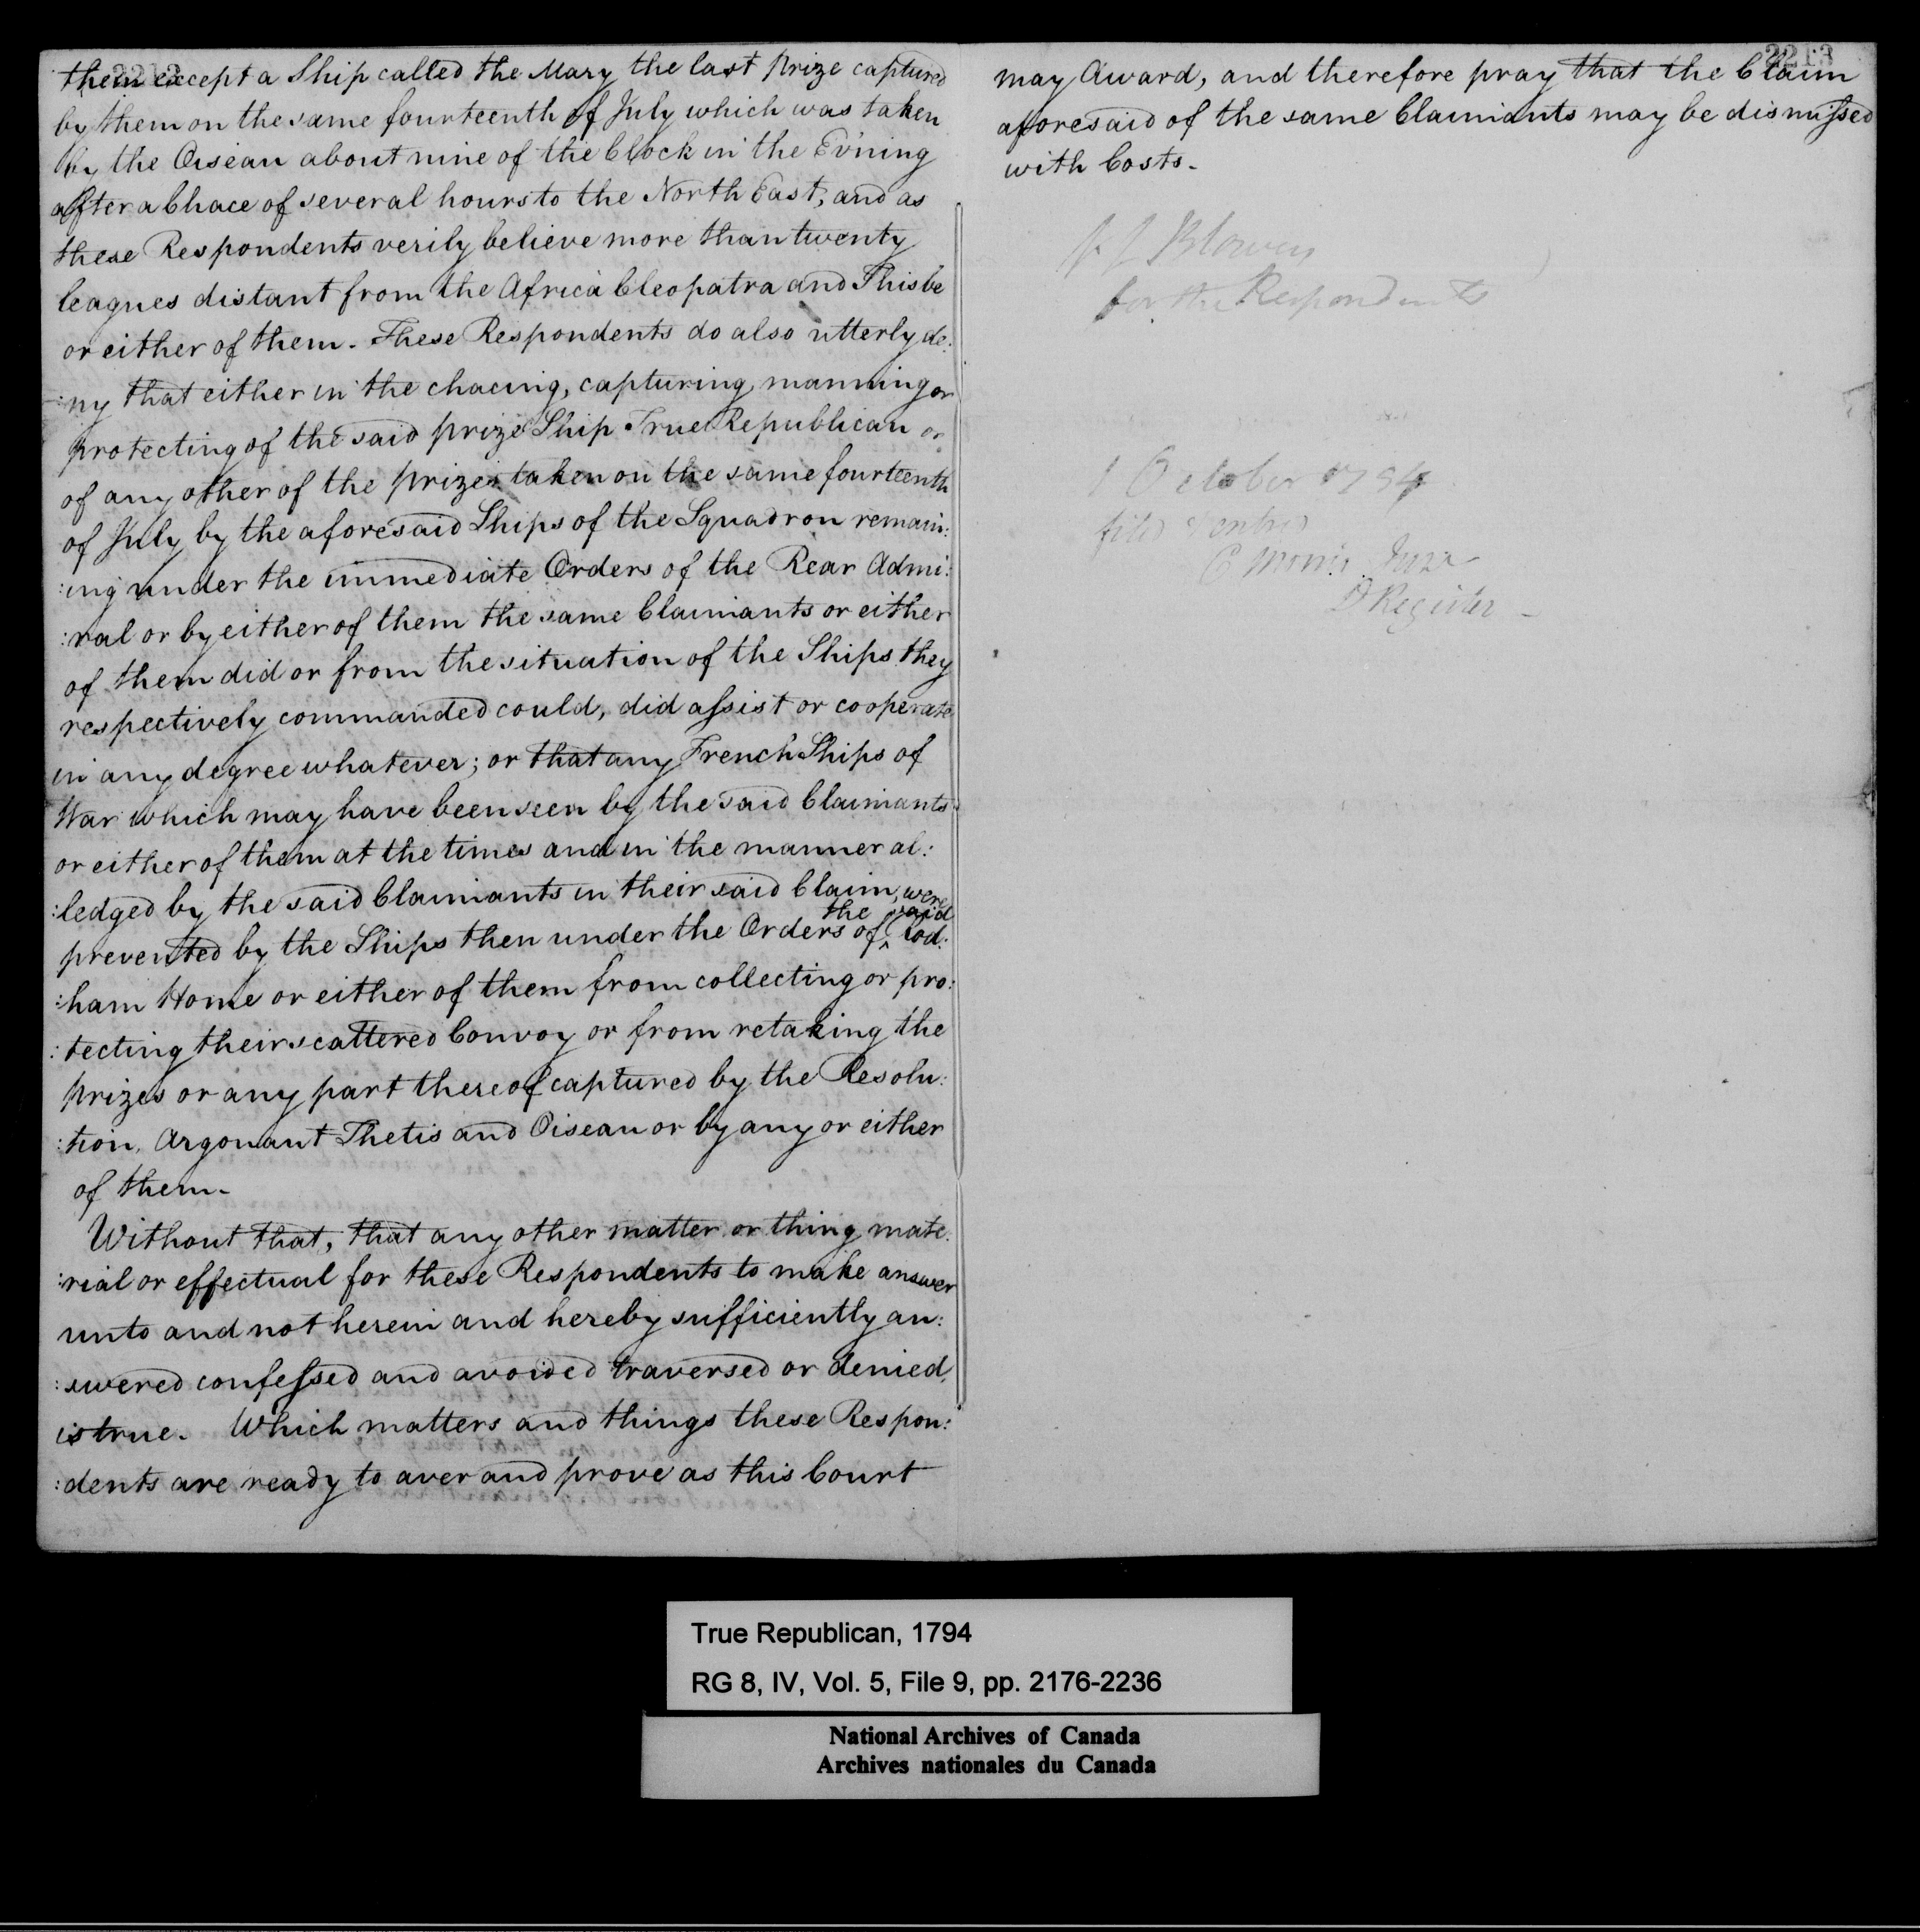 2212
them except a Ship called the Mary the last prize captured
by them on the same fourteenth of July which was taken
by the Oiseau about nine of the Clock in the Ev'ning
after a Chace of several hours to the North East, and as
these Respondents verily believe more than twenty
leagues distant from the Africa Cleopatra and Thisbe
or either of them. These Respondents do also utterly de:
:ny that either in the chacing, capturing, manning or
protecting of the said prize Ship True Republican or
of any other of the prizes taken on the same fourteenth
of July by the aforesaid Ships of the Squadron remain:
:ing under the immediate Orders of the Rear Admi:
:ral or by either of them the same Claimants or either
of them did or from the situation of the Ships they
respectively commanded could, did assist or cooperate
in any degree whatever; or that any French Ships of
War which may have been seen by the said Claimants
or either of them at the times and in the manner al:
:ledged by the said Claimants in their said Claim, were
prevented by the Ships then under the Orders of the said Rod:
:ham Home or either of them from collecting or pro:
:tecting their scattered Convoy or from retaking the
prizes or any part thereof captured by the Resolu:
:tion, Argonaut Thetis and Oiseau or by any or either
of them.
Without that, that any other matter or thing mate:
:rial or effectual for these Respondents to make answer
unto and not herein and hereby sufficiently an:
:swered confessed and avoided traversed or denied,
is true. Which matters and things these Respon:
:dents are ready to aver and prove as this Court
2213
may Award, and therefore pray that the Claim
aforesaid of the same Claimants may be dismissed
with Costs.
Blowers
for the Respondents
1 October 1794
filed & entred
C Morris Junr
D Register
True Republican, 1794
RG 8, IV, Vol. 5, File 9, pp. 2176-2236
National Archives of Canada
Archives nationales du Canada